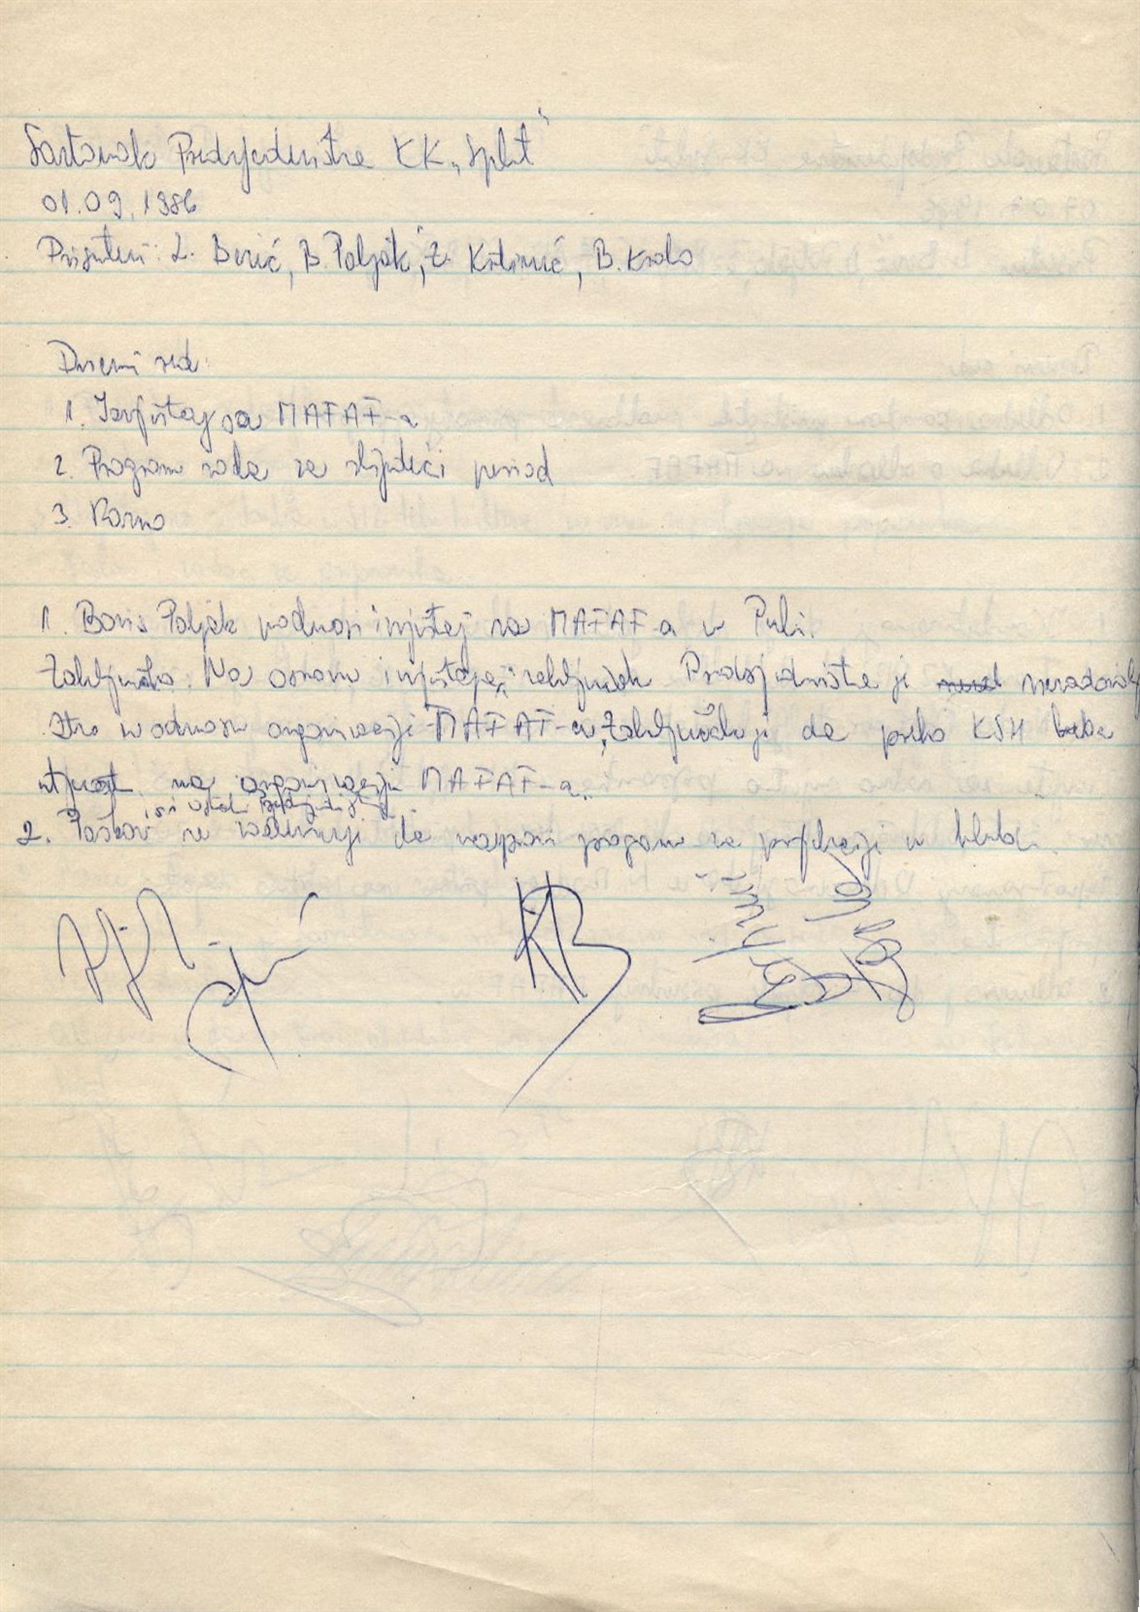 Sastanak Predsjedništva KK „Split"
01.09.1986
Prisutni: L. Berić, B. Poljak, Ž. Krstinić, B. Kralo
Dnevni red:
1. Izvještaj sa MAFAF-a
2. Program rada za slijedeći period
3. Razno
1. Boris Poljak podnosi izvještaj sa MAFAF-a u Puli.
Zaključak: Na osnovu izvještaja, zaključak Predsjedništva je nezadovolj
stvo u odnosu organizacije MAFAF-a. Zaključak je da preko KSH treba
utjecati na organizaciju MAFAF-a.
i svi ostali
2. se zadužuje da napravi program za projekcije u klubu.